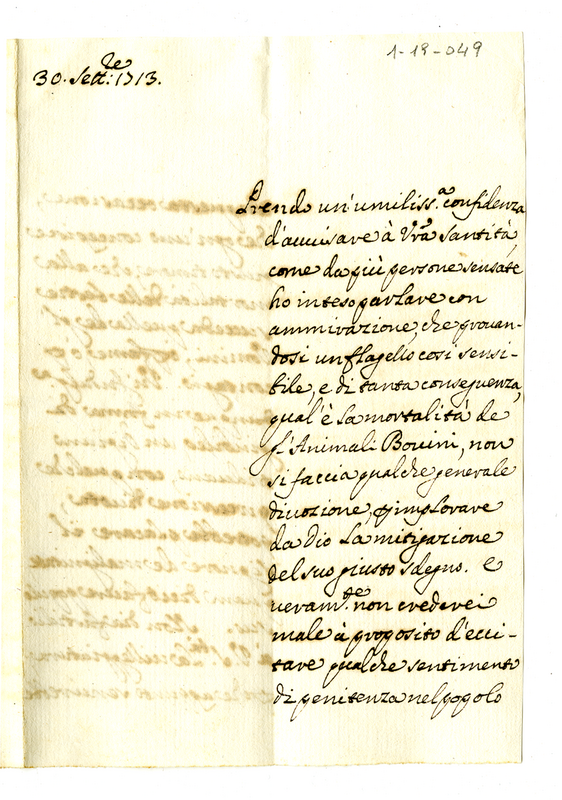 1-19-049
30. Sett.re 1713.
Prendo un'umiliss.a confidenza
d'auuisare à Vrã Santità,
come da più persone sensate
ho inteso parlare con
ammirazione, che prouan-
dosi un flagello così sensi-
bile, e di tanta conseguenza,
qual'è la mortalità de
gl'Animali Bouini, non
si faccia qualche generale
diuozione, p implorare
da Dio la mitigazione
del suo giusto sdegno. e
ueram.te non crederei
male à proposito d'ecci-
tare qualche sentimento
di penitenza nel popolo